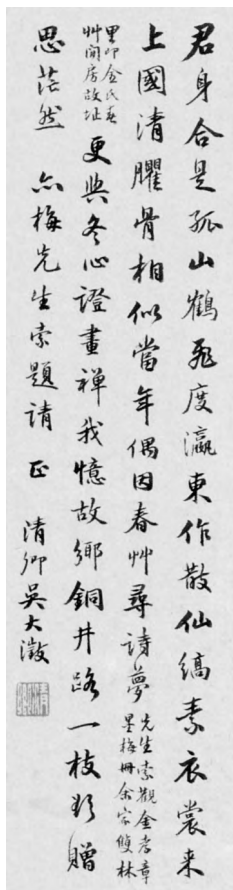 君身合是孤山鶴飛度瀛東作散仙縞素衣裳来
上國清臞骨相似當年偶因春艸尋詩夢
先生索觀金孝章
墨梅冊余家雙林
里即金氏春
艸閒房故址
更與冬心證畫禪我憶故鄉銅井路一枝欲贈
思茫然 亦梅先生索題請 正 清卿吳大澂